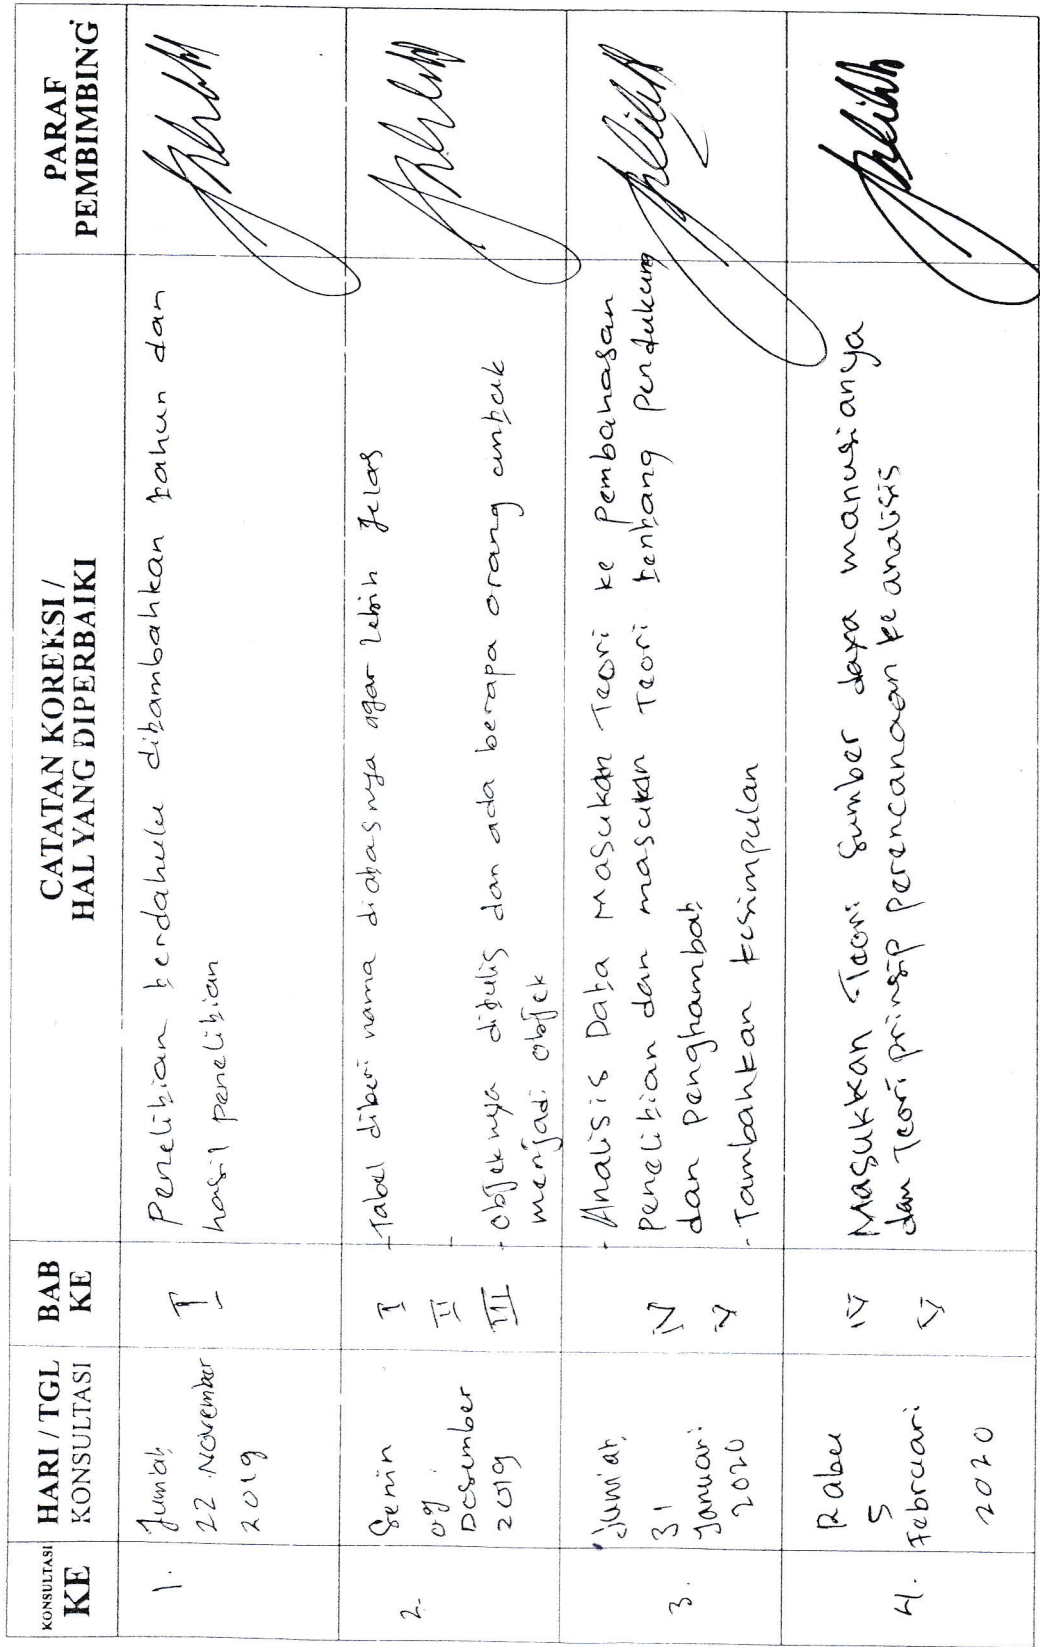 KONSULTASI
KE
HARI / TGL
KONSULTASI
BAB
KE
CATATAN KOREKSI /
HAL YANG DIPERBAIKI
PARAF
PEMBIMBING
1.
Jumiah
22 November
2019
I
Penelitian terdahulu ditambahkan tahun dan
hasil penelitian
2.
Senin
09
Desember
2019
I
II
III
- Tabel diberi nama diatasnya agar lebih jelas
-
- Objeknya ditulis dan ada berapa orang untuk
menjadi objek
3.
Jumiah,
31
Januari
2020
IV
V
- Analisis Data Masukan Teori ke Pembahasan
Penelitian dan masukan Teori tentang Pendukung
dan Penghambat
- Tambahkan kesimpulan
4.
Rabu
5
Februari
2020
IV
V
Masukkan Teori Sumber daya manusianya
dan Teori prinsip Perencanaan ke analisis